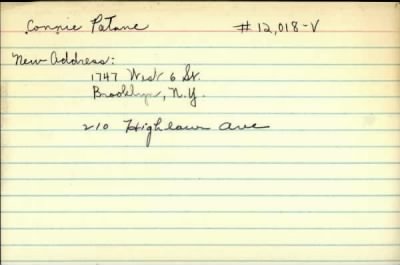 Connie Patane #12,018-V
New Address:
1747 West 6 St.
Brooklyn, N.Y.
210 Highlawn Ave